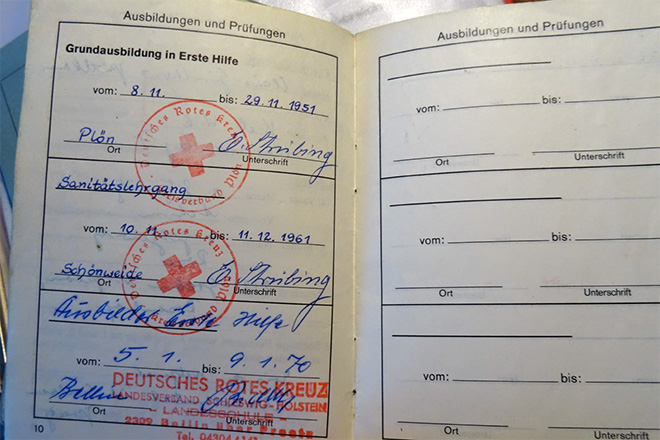 Ausbildungen und Prüfungen
Grundausbildung in Erste Hilfe
vom: 8. 11. bis: 29. 11. 1951
Deutsches Rotes Kreuz
Plön
O. Strübing
Ort Unterschrift
Sanitätslehrgang
vom: 10. 11. bis: 11. 12. 1961
Deutsches Rotes Kreuz
Schönweide
O. Strübing
Ort Unterschrift
Ausbilder Erste Hilfe
vom: 5. 1. 9. 1. 70
DEUTSCHES ROTES KREUZ
LANDESVERBAND SCHLESWIG-HOLSTEIN
- LANDESSCHULE -
Bellin
Ort Unterschrift
2309 Bellin über Preetz
Tel.
10
Ausbildungen und Prüfungen
vom: bis:
Ort Unterschrift
vom: bis:
Ort Unterschrift
vom: bis:
Ort Unterschrift